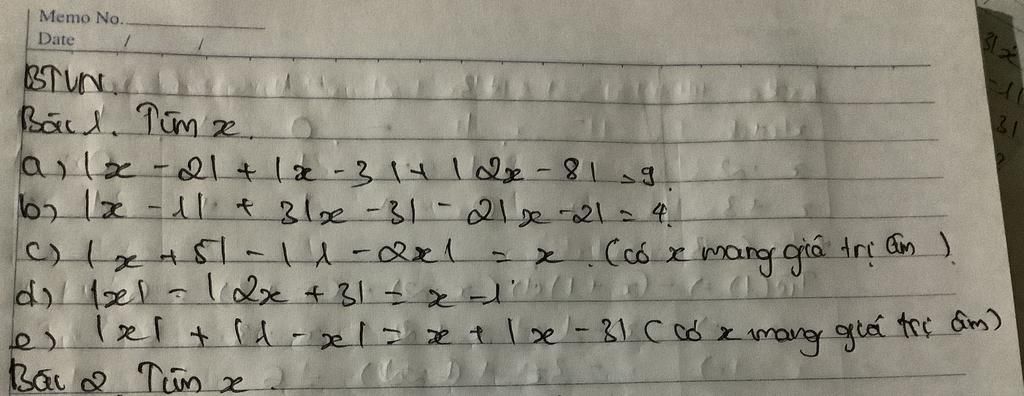 Memo No.
Date / /
BTVN.
Bài 1. Tìm x.
a) |x - 2| + |x - 3| + |2x - 8| = 9.
b) |x - 1| + 3|x - 3| - 2|x - 2| = 4.
c) |x + 5| - |1 - 2x| = x. (có x mang giá trị âm).
d) |x| - |2x + 3| = x - 1.
e) |x| + |1 - x| = x + |x - 3| (có x mang giá trị âm)
Bài 2. Tìm x.